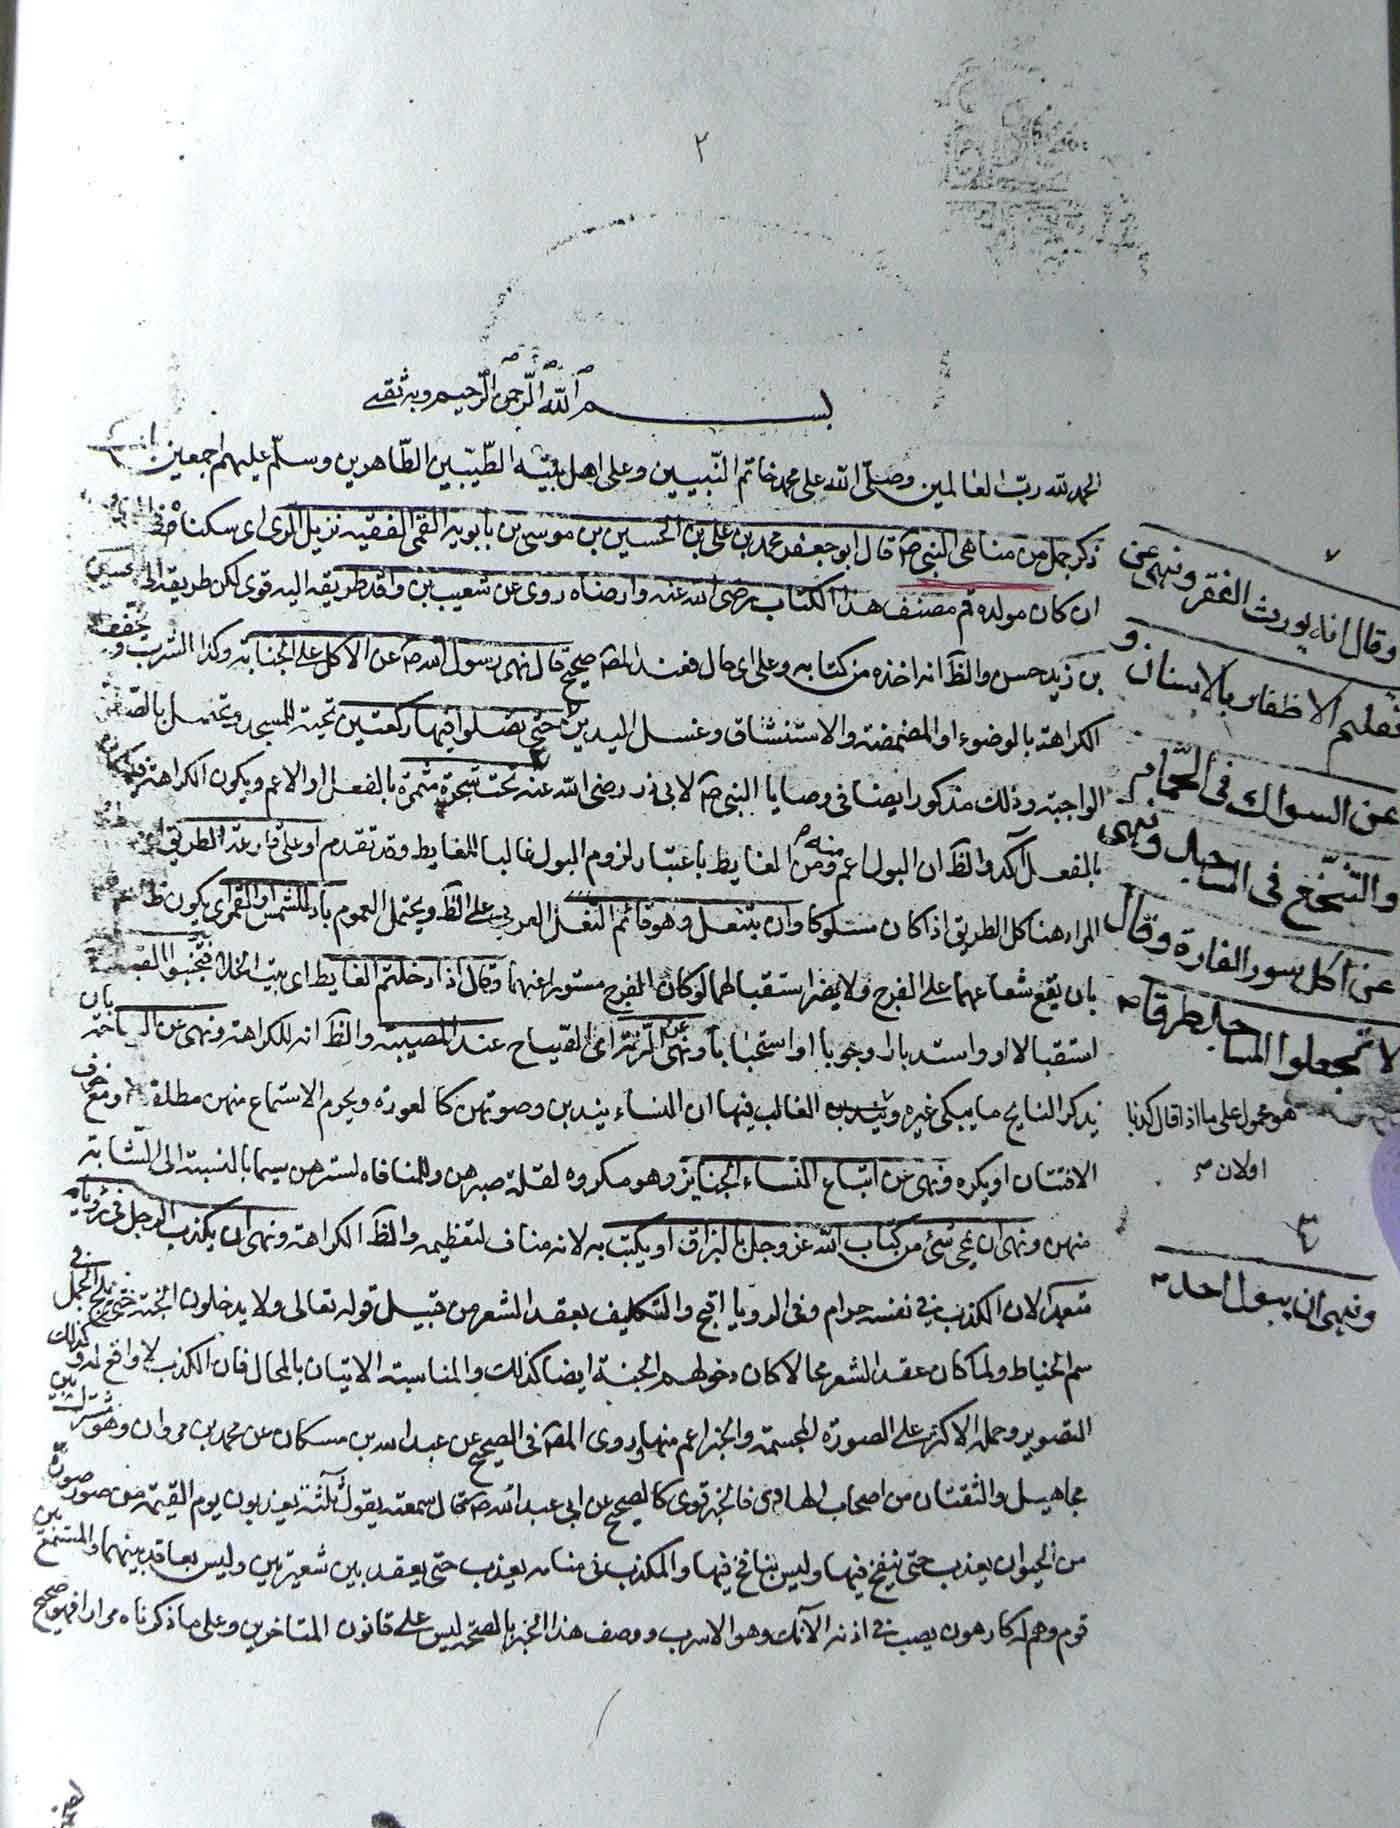 ٢
بسم الله الرحمن الرحيم وبه ثقتي
الحمد لله رب العالمين وصلى الله على محمد خاتم النبيين وعلى اهل بيته الطيبين الطاهرين وسلم عليهم اجمعين
ذكر جمل من مناهي النبي ص قال ابو جعفر محمد بن علي بن الحسين بن موسى بن بابويه القمي الفقيه نزيل الري اى سكناه في الري و
ان كان مولده قم مصنف هذا الكتاب رضي الله عنه وارضاه روى عن شعيب بن واقد طريقه اليه قوي لكن طريقه الى الحسين
بن زيد حسن والظ انه اخذه من كتابه وعلى اى حال فعند المص صحيح قال نهى رسول الله ص عن الاكل على الجنابة وكذا الشرب و تخفف
الكراهة بالوضوء او المضمضة والاستنشاق وغسل اليدين حتى يصلوا فيها ركعتين تحية للمسجد وتحصل بالصلوة
الواجبة وذلك مذكور ايضا في وصايا النبي ص لابي ذر رضي الله عنه تحت شجرة مثمرة بالفعل او الاعم ويكون الكراهة فيما كان
بالفعل آكد والظ ان البول اعم منه ومن الغايط باعتبار لزوم البول غالبا للغايط وقد تقدم او على قارعة الطريق
المراد هنا كل الطريق اذا كان مسلوكا وان يتنعل وهو قائم التنعل العربي على الظ ويحتمل العموم باد للشمس او القمر اى يكون
بان يقع شعاعهما على الفرج ولا يضر استقبالهما لو كان الفرج مستورا عنهما وقال اذا دخلتم الغايط اى بيت الخلاء فتجنبوا القبلة
استقبالا او استدبارا وجوبا او استحبابا ونهى عن الرنة اى الصياح عند المصيبة والظ انه للكراهة ونهى عن النياحة بان
يذكر النايح ما يبكي غيره ويندب الغالب فيها ان النساء يندبن وصوتهن كالعورة ويحرم الاستماع منهن مطلقا او مع خوف
الافتتان او يكره ونهى عن اتباع النساء الجنايز وهو مكروه لقلة صبرهن وللمنافاة لسترهن سيما بالنسبة الى الشابة
منهن ونهى ان يمحى شئ من كتاب الله عز وجل بالبزاق او يكتب به لانه مناف لتعظيمه والظ الكراهة ونهى ان يكذب الرجل في رؤياه
متعمدا لان الكذب في نفسه حرام وفي الرويا اقبح والتكليف بعقد الشعر من قبيل قوله تعالى ولا يدخلون الجنة حتى يلج الجمل في
سم الخياط ولما كان عقد الشعر محالا كان دخولهم الجنة ايضا كذلك والمناسبة الاتيان بالمحال فان الكذب لا واقع له وكذلك
التصوير وحمله الاكثر على الصورة المجسمة والخبر اعم منها وروى المص في الصحيح عن عبد الله بن مسكان عن محمد بن مروان وهو مشترك بين
مجاهيل والثقتان من اصحاب الهادي فالخبر قوي كالصحيح عن ابي عبد الله ص قال سمعته يقول ثلثة يعذبون يوم القيمة من صور صورة
من الحيوان يعذب حتى ينفخ فيها وليس بنافخ فيها والمكذب في منامه يعذب حتى يعقد بين شعيرتين وليس بعاقد بينهما والمستمع بين
قوم وهم له كارهون يصب في اذنه الآنك وهو الاسرب ووصف هذا الخبر بالصحة ليس على قانون المتاخرين وعلى ما ذكرناه مرارا فهو صحيح
وقال انه يورث الفقر ونهى عن
تقليم الاظفار بالاسنان و
عن السواك في الحمام
والتنخع في المساجد ونهى
عن اكل سور الفارة وقال
لا تجعلوا المساجد طرقا
هو محمول على ما اذا قال كذبا
اولان
ونهى ان يبول احد